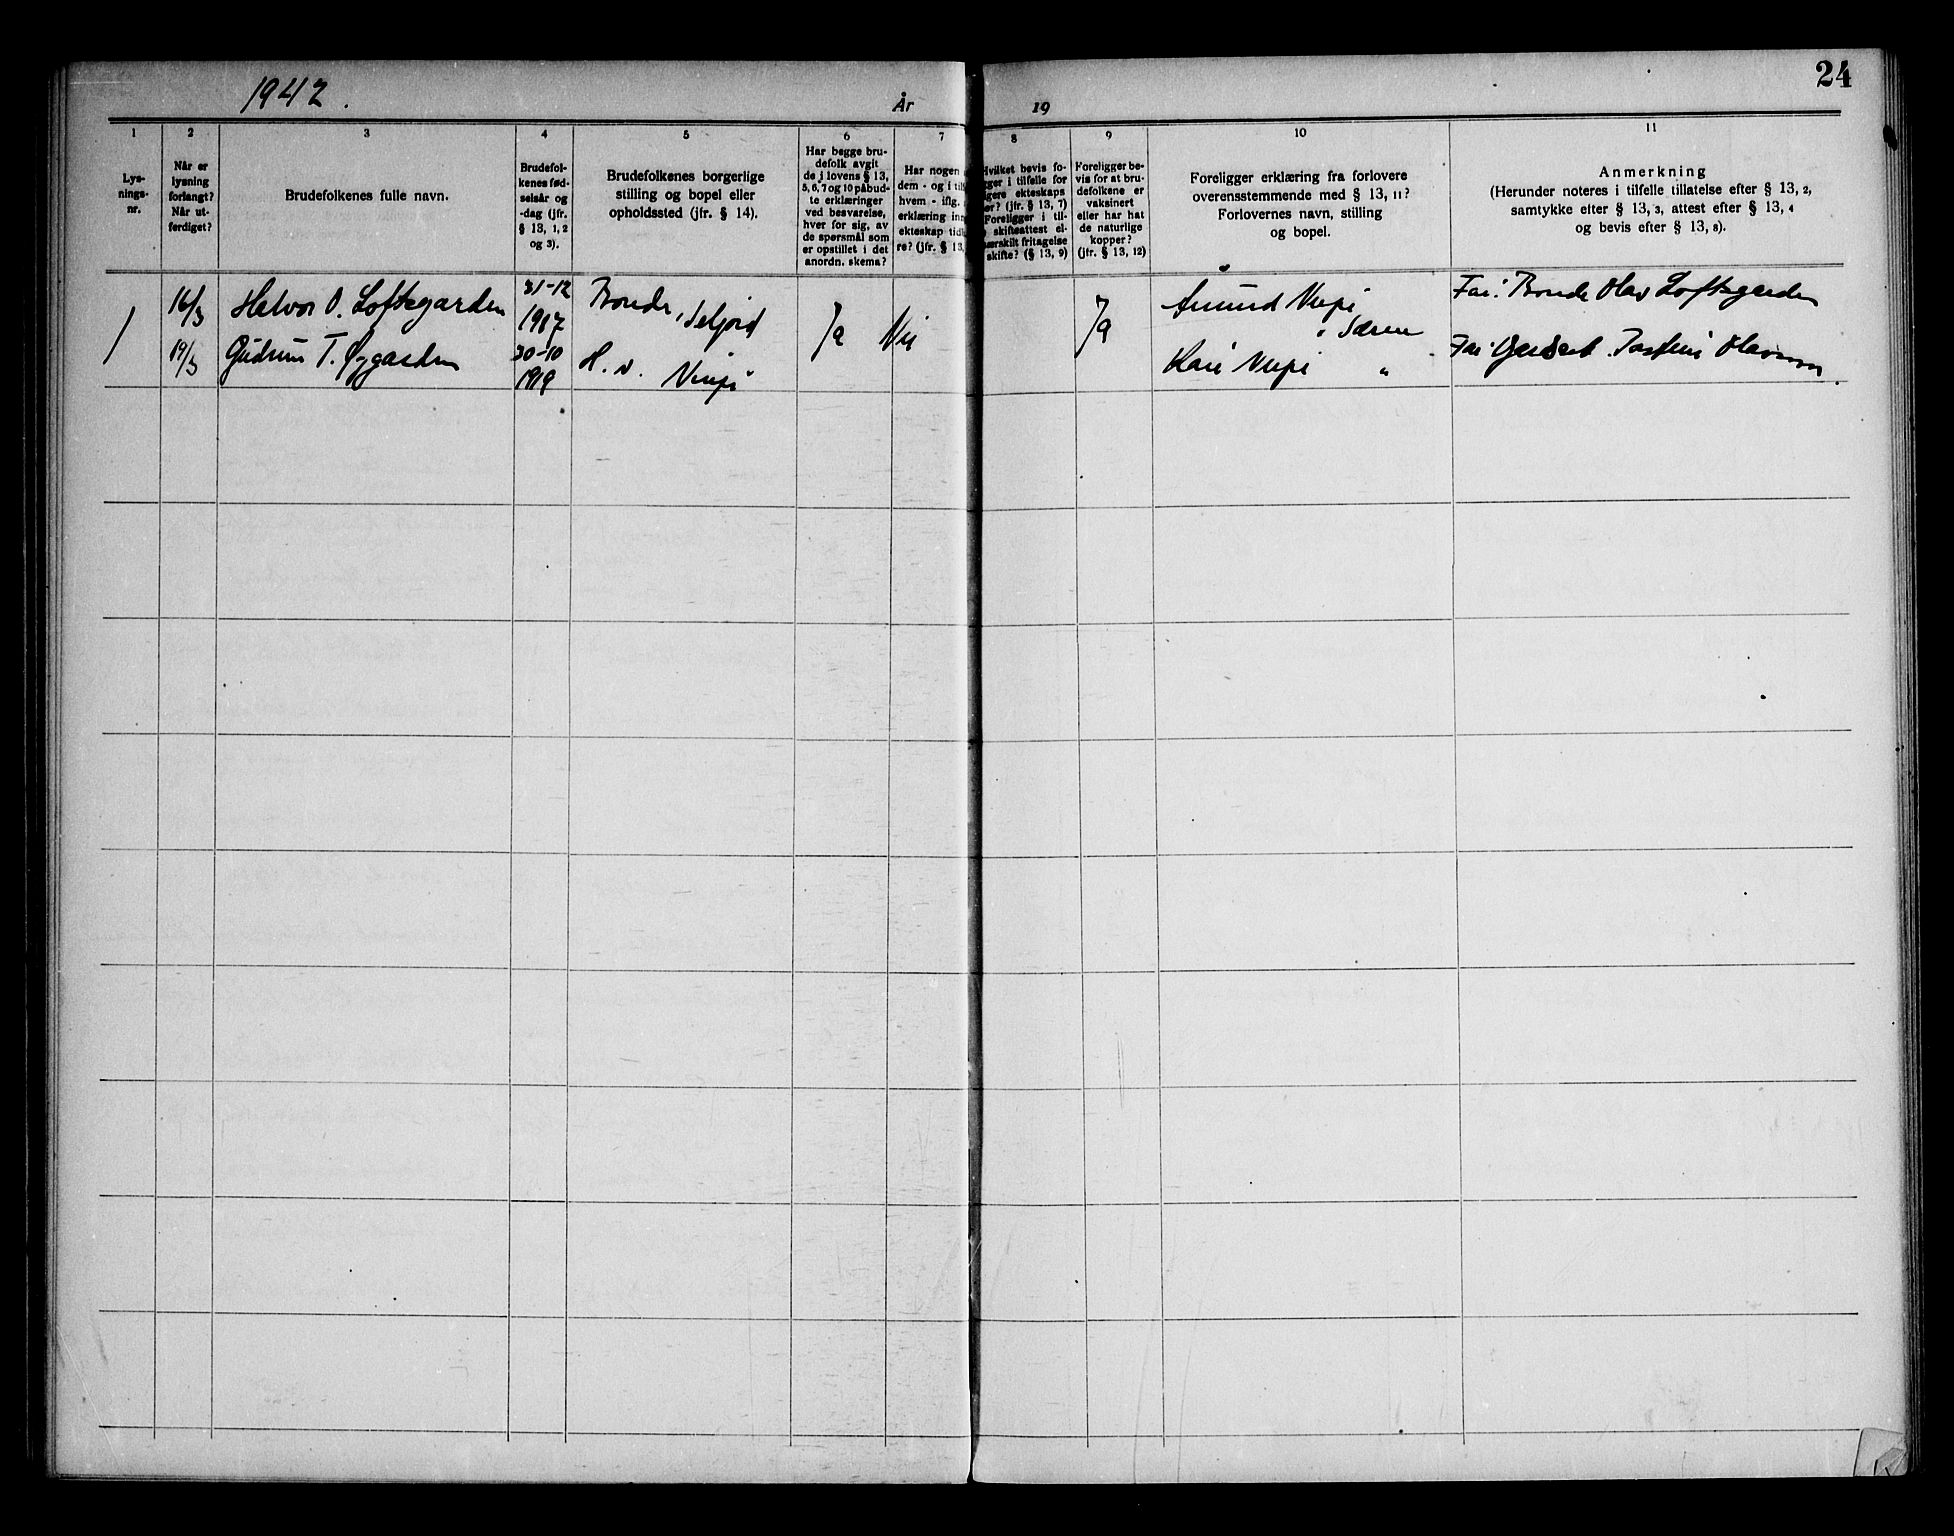 24
1942.
År
19
1
Lys-
nings-
nr.
2
Når er
lysning
forlangt?
Når ut-
ferdiget?
3
Brudefolkenes fulle navn.
4
Brudefol-
kenes fød-
selsår og
-dag (jfr.
§ 13, 1, 2
og 3).
5
Brudefolkenes borgerlige
stilling og bopel eller
opholdssted (jfr. § 14).
6
Har begge bru-
defolk avgit
de i lovens § 13,
5, 6, 7 og 10 påbud-
te erklæringer
ved besvarelse,
hver for sig, av
de spørsmål som
er opstillet i det
anordn. skema?
7
Har nogen
dem - og i til
hvem - iflg.
erklæring inn
ekteskap tid
re? (jfr. § 13,
8
Hvilket bevis fo-
ger i tilfelle for
igere ekteskaps
er? (jfr. § 13, 7)
Foreligger i til-
skifteattest el-
særskilt fritagelse
skifte? (§ 13, 9)
9
Foreligger be-
vis for at bru-
defolkene er
vaksinert
eller har hat
de naturlige
kopper?
(jfr. § 13, 12)
10
Foreligger erklæring fra forlovere
overensstemmende med § 13, 11?
Forlovernes navn, stilling
og bopel.
11
Anmerkning
(Herunder noteres i tilfelle tillatelse efter § 13, 2,
samtykke efter § 13, 3, attest efter § 13, 4
og bevis efter § 13, 8).
1
16/3
19/3
Halvor O. Loftsgarden
Gudrun T. Øygarden
31-12
1917
30-10
1919
Bonde, Seljord
H. d.
Ja
Nei
Ja
Amund
Kari
"
Far: Bonde Olav Loftsgarden
Far: Olavson.